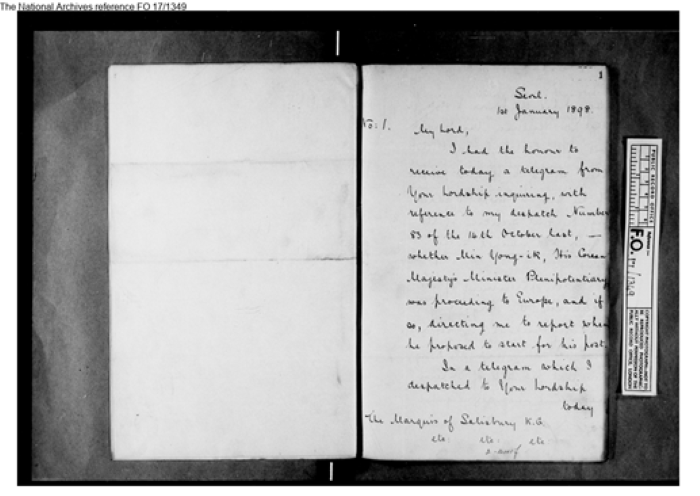 The National Archives reference FO 17/1349
1
Seoul.
1st January 1898.
No: 1.
My Lord,
I had the honour to
receive today a telegram from
Your Lordship inquiring, with
reference to my despatch Number
83 of the 16th October last, —
whether Min Yong-ik, His Corean
Majesty's Minister Plenipotentiary
was proceeding to Europe, and if
so, directing me to report when
he proposed to start for his post.
In a telegram which I
despatched to Your Lordship
today
The Marquis of Salisbury K.G.
etc: etc: etc
PUBLIC RECORD OFFICE
F.O. 17/1349
COPYRIGHT PHOTOGRAPH—NOT TO
BE REPRODUCED PHOTOGRAPHIC-
ALLY WITHOUT PERMISSION OF THE
PUBLIC RECORD OFFICE, LONDON